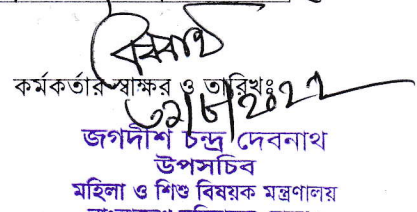 কর্মকর্তার স্বাক্ষর ও তারিখঃ
জগদীশ চন্দ্র দেবনাথ
উপসচিব
মহিলা ও শিশু বিষয়ক মন্ত্রণালয়